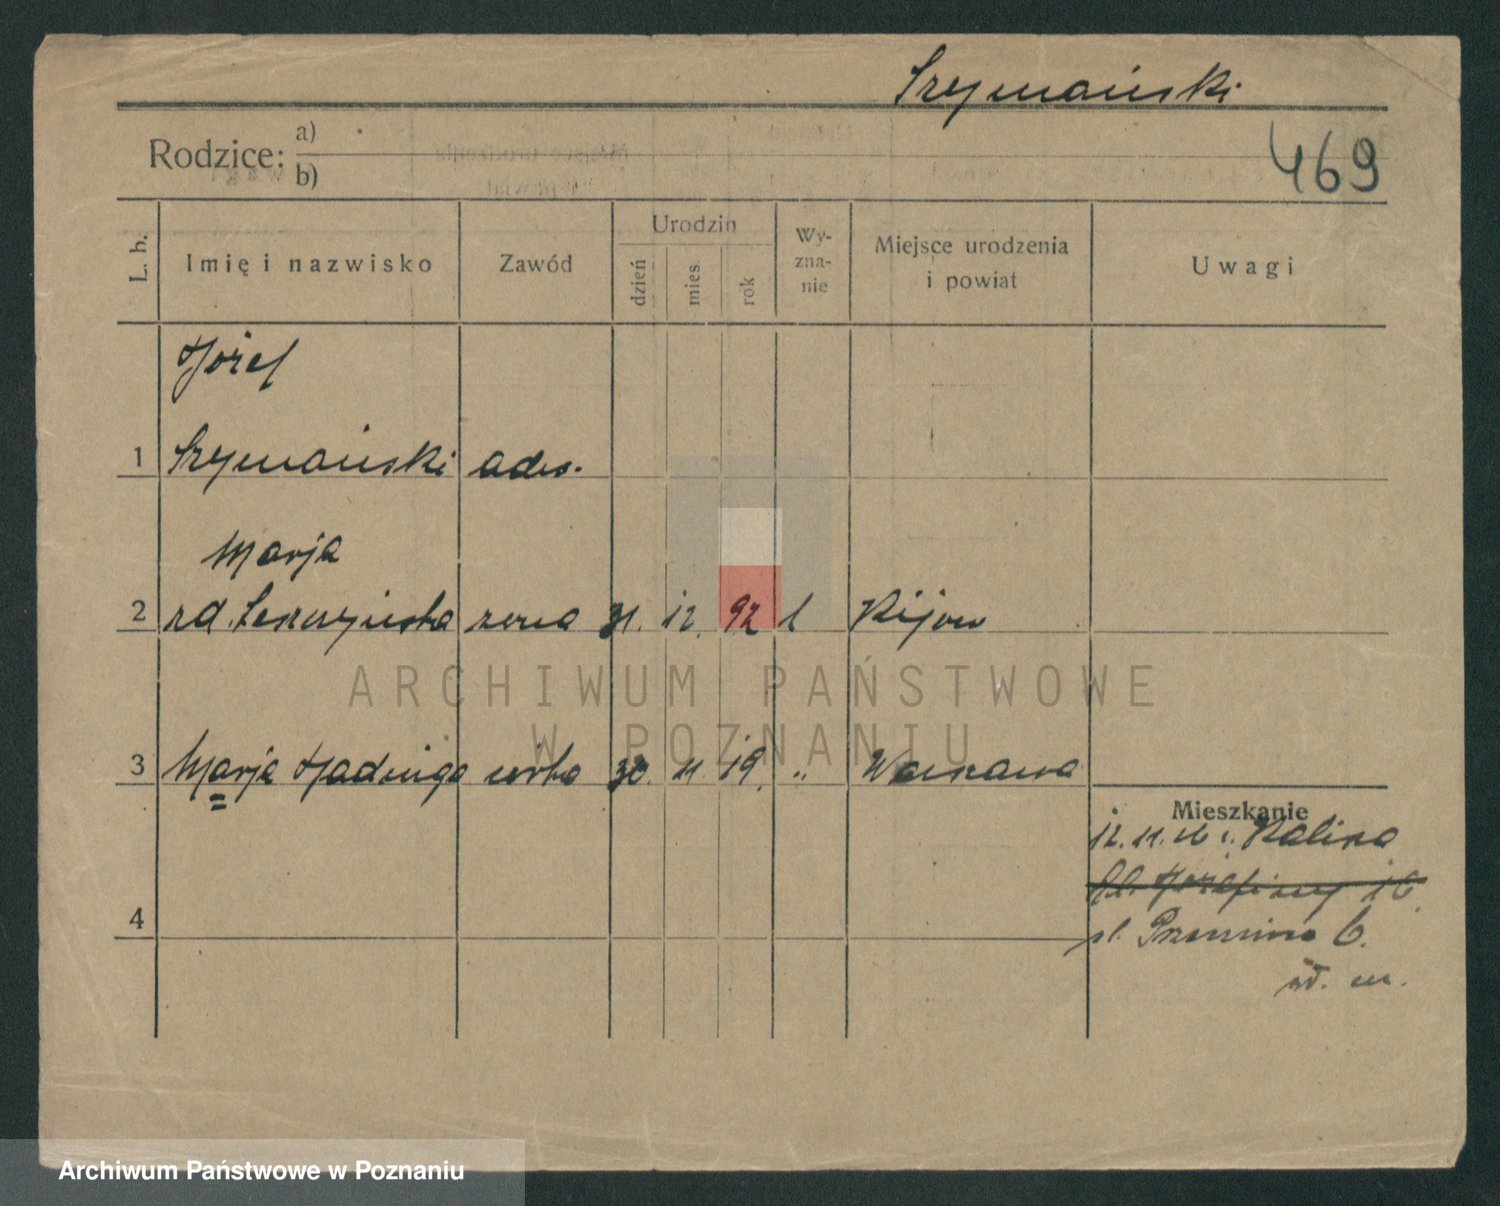 Szymański
469
Rodzice: a)
b)
L. b.
Imię i nazwisko
Zawód
Urodzin
dzień
mies.
rok
Wy-
zna-
nie
Miejsce urodzenia
i powiat
Uwagi
Józef
1 Szymański adw.
Marja
2 zd. żona 31. 12. 92 k Kijow
3 Marja Jadwiga córka 30. 11. 19. " Warszawa
Mieszkanie
12. 11. 26 z Kalisza
Pl. 16
pl. 6.
m.
4
ARCHIWUM PAŃSTWOWE
W POZNANIU
Archiwum Państwowe w Poznaniu